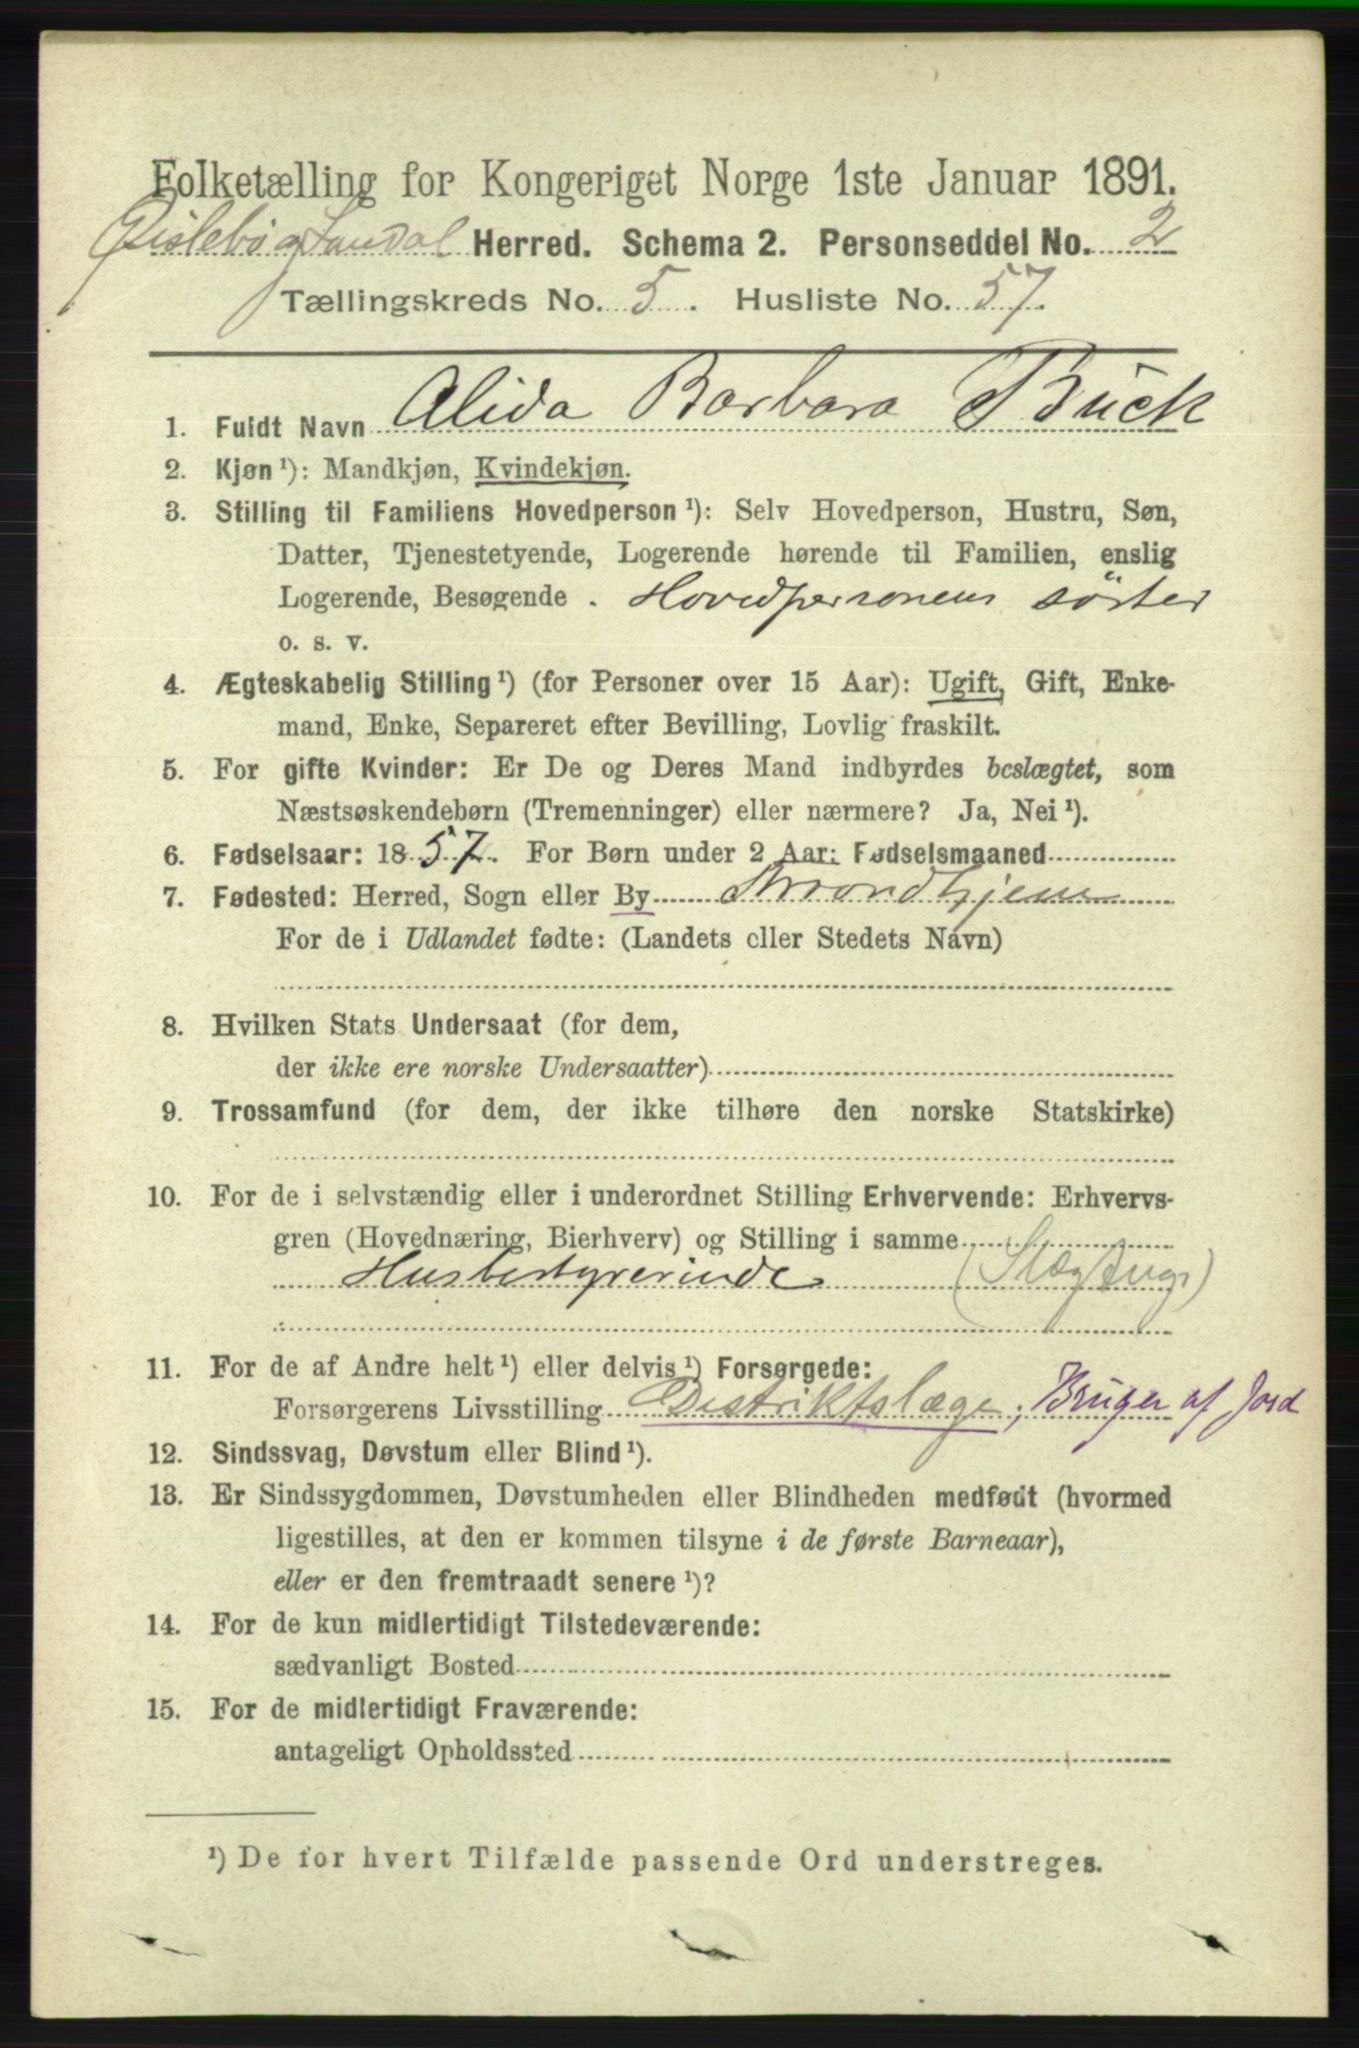 Folketælling for Kongeriget Norge 1ste Januar 1891.
Øislebø og Laudal Herred. Schema 2. Personseddel No. 2
Tællingskreds No. 5. Husliste No. 57.
1. Fuldt Navn Alida Barbara Buck
2. Kjøn ¹): Mandkjøn, Kvindekjøn.
3. Stilling til Familiens Hovedperson ¹): Selv Hovedperson, Hustru, Søn,
Datter, Tjenestetyende, Logerende hørende til Familien, enslig
Logerende, Besøgende . Hovedpersonens söster
o. s. v.
4. Ægteskabelig Stilling ¹) (for Personer over 15 Aar): Ugift, Gift, Enke-
mand, Enke, Separeret efter Bevilling, Lovlig fraskilt.
5. For gifte Kvinder: Er De og Deres Mand indbyrdes beslægtet, som
Næstsøskendebørn (Tremenninger) eller nærmere? Ja, Nei ¹).
6. Fødselsaar: 1857. For Børn under 2 Aar: Fødselsmaaned
7. Fødested: Herred, Sogn eller By Throndhjem
For de i Udlandet fødte: (Landets eller Stedets Navn)
8. Hvilken Stats Undersaat (for dem,
der ikke ere norske Undersaatter)
9. Trossamfund (for dem, der ikke tilhøre den norske Statskirke)
10. For de i selvstændig eller i underordnet Stilling Erhvervende: Erhvervs-
gren (Hovednæring, Bierhverv) og Stilling i samme
Husbestyrerinde (Slægtnge)
11. For de af Andre helt ¹) eller delvis ¹) Forsørgede:
Forsørgerens Livsstilling Distriktslæge, Bruger af Jord
12. Sindssvag, Døvstum eller Blind ¹).
13. Er Sindssygdommen, Døvstumheden eller Blindheden medfødt (hvormed
ligestilles, at den er kommen tilsyne i de første Barneaar),
eller er den fremtraadt senere ¹)?
14. For de kun midlertidigt Tilstedeværende:
sædvanligt Bosted
15. For de midlertidigt Fraværende:
antageligt Opholdssted
¹) De for hvert Tilfælde passende Ord understreges.